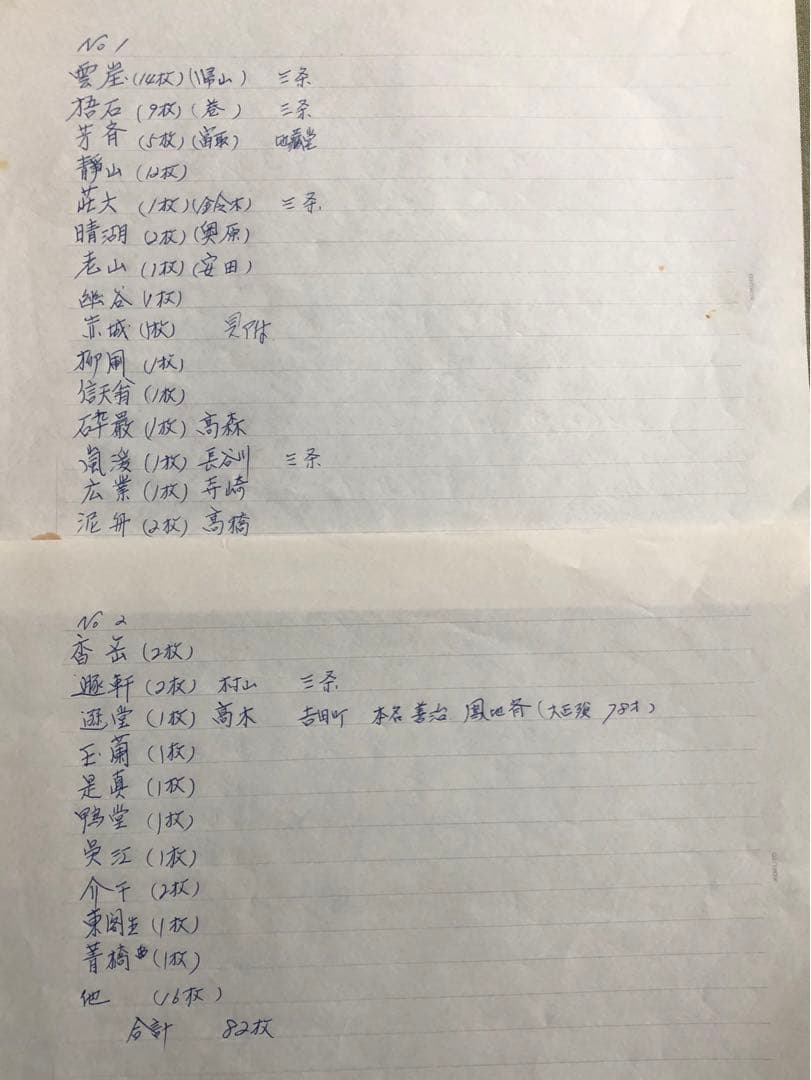 No 1
雲崖(14枚)(帰山) 三条
梧石(9枚)(巻) 三条
芳斉(5枚)(富取) 地蔵堂
靜山(12枚)
荘大(1枚)(鈴木) 三条
晴湖(2枚)(奥原)
老山(1枚)(安田)
幽谷(1枚)
赤城(1枚) 見附
柳圃(1枚)
信天翁(1枚)
砕巌(1枚)高森
嵐渓(1枚)長谷川 三条
広業(1枚)寺崎
泥舟(2枚)高橋
No 2
香岳(2枚)
遯軒(2枚)村山 三条
遜堂(1枚)高木 吉田町 本名善治 (大正 78才)
玉蘭(1枚)
是真(1枚)
鴨堂(1枚)
呉江(1枚)
介千(2枚)
東閣生(1枚)
菁橋(1枚)
他 (16枚)
合計 82枚